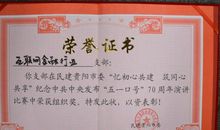 荣誉证书
互联网金融行业 支部:
你支部在民建贵阳市委“忆初心共建 筑同心
共享”纪念中共中央发布“五一口号”70周年演讲
比赛中荣获组织奖。特发此状,以资表彰!
民建贵阳市委